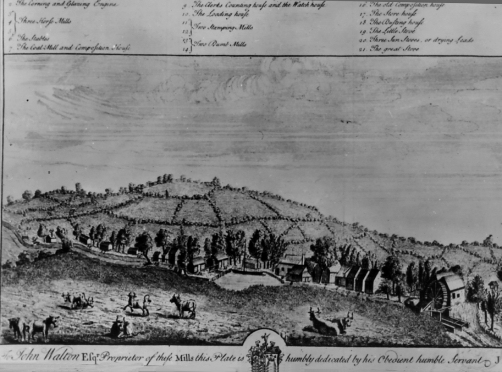 The Corning and Glazing Engine
Three Horse Mills
The Stables
The Coal Mill and Composition House
9 The Clerks Counting house and the Watch house
10 The Loading house
11
12
Two Stamping Mills
13
14
Two Dumb Mills
16 The old Composition house
17 The Store house
18 The Dusting house
19 The Little Stove
20 Three Sun Stoves, or drying Leads
21 The great Stove
To John Walton Esqr. Proprietor of these Mills this Plate is humbly dedicated by his Obedient humble Servant